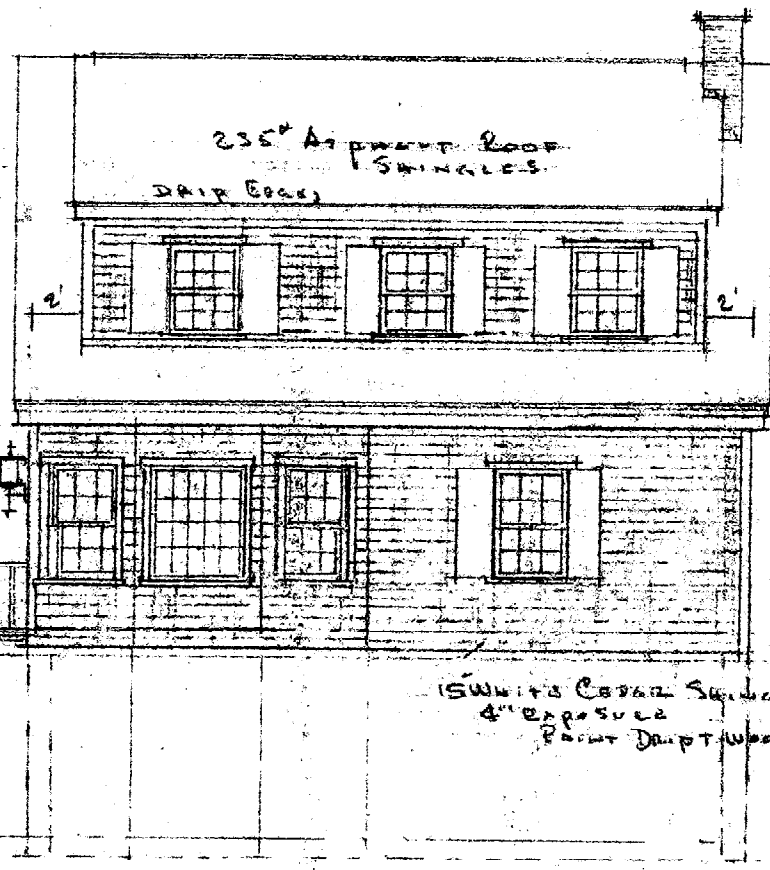 235# Asphalt Roof
Shingles
Drip Edge
2'
2'
15" White Cedar Shing
4" Exposure
Paint Driftwoo